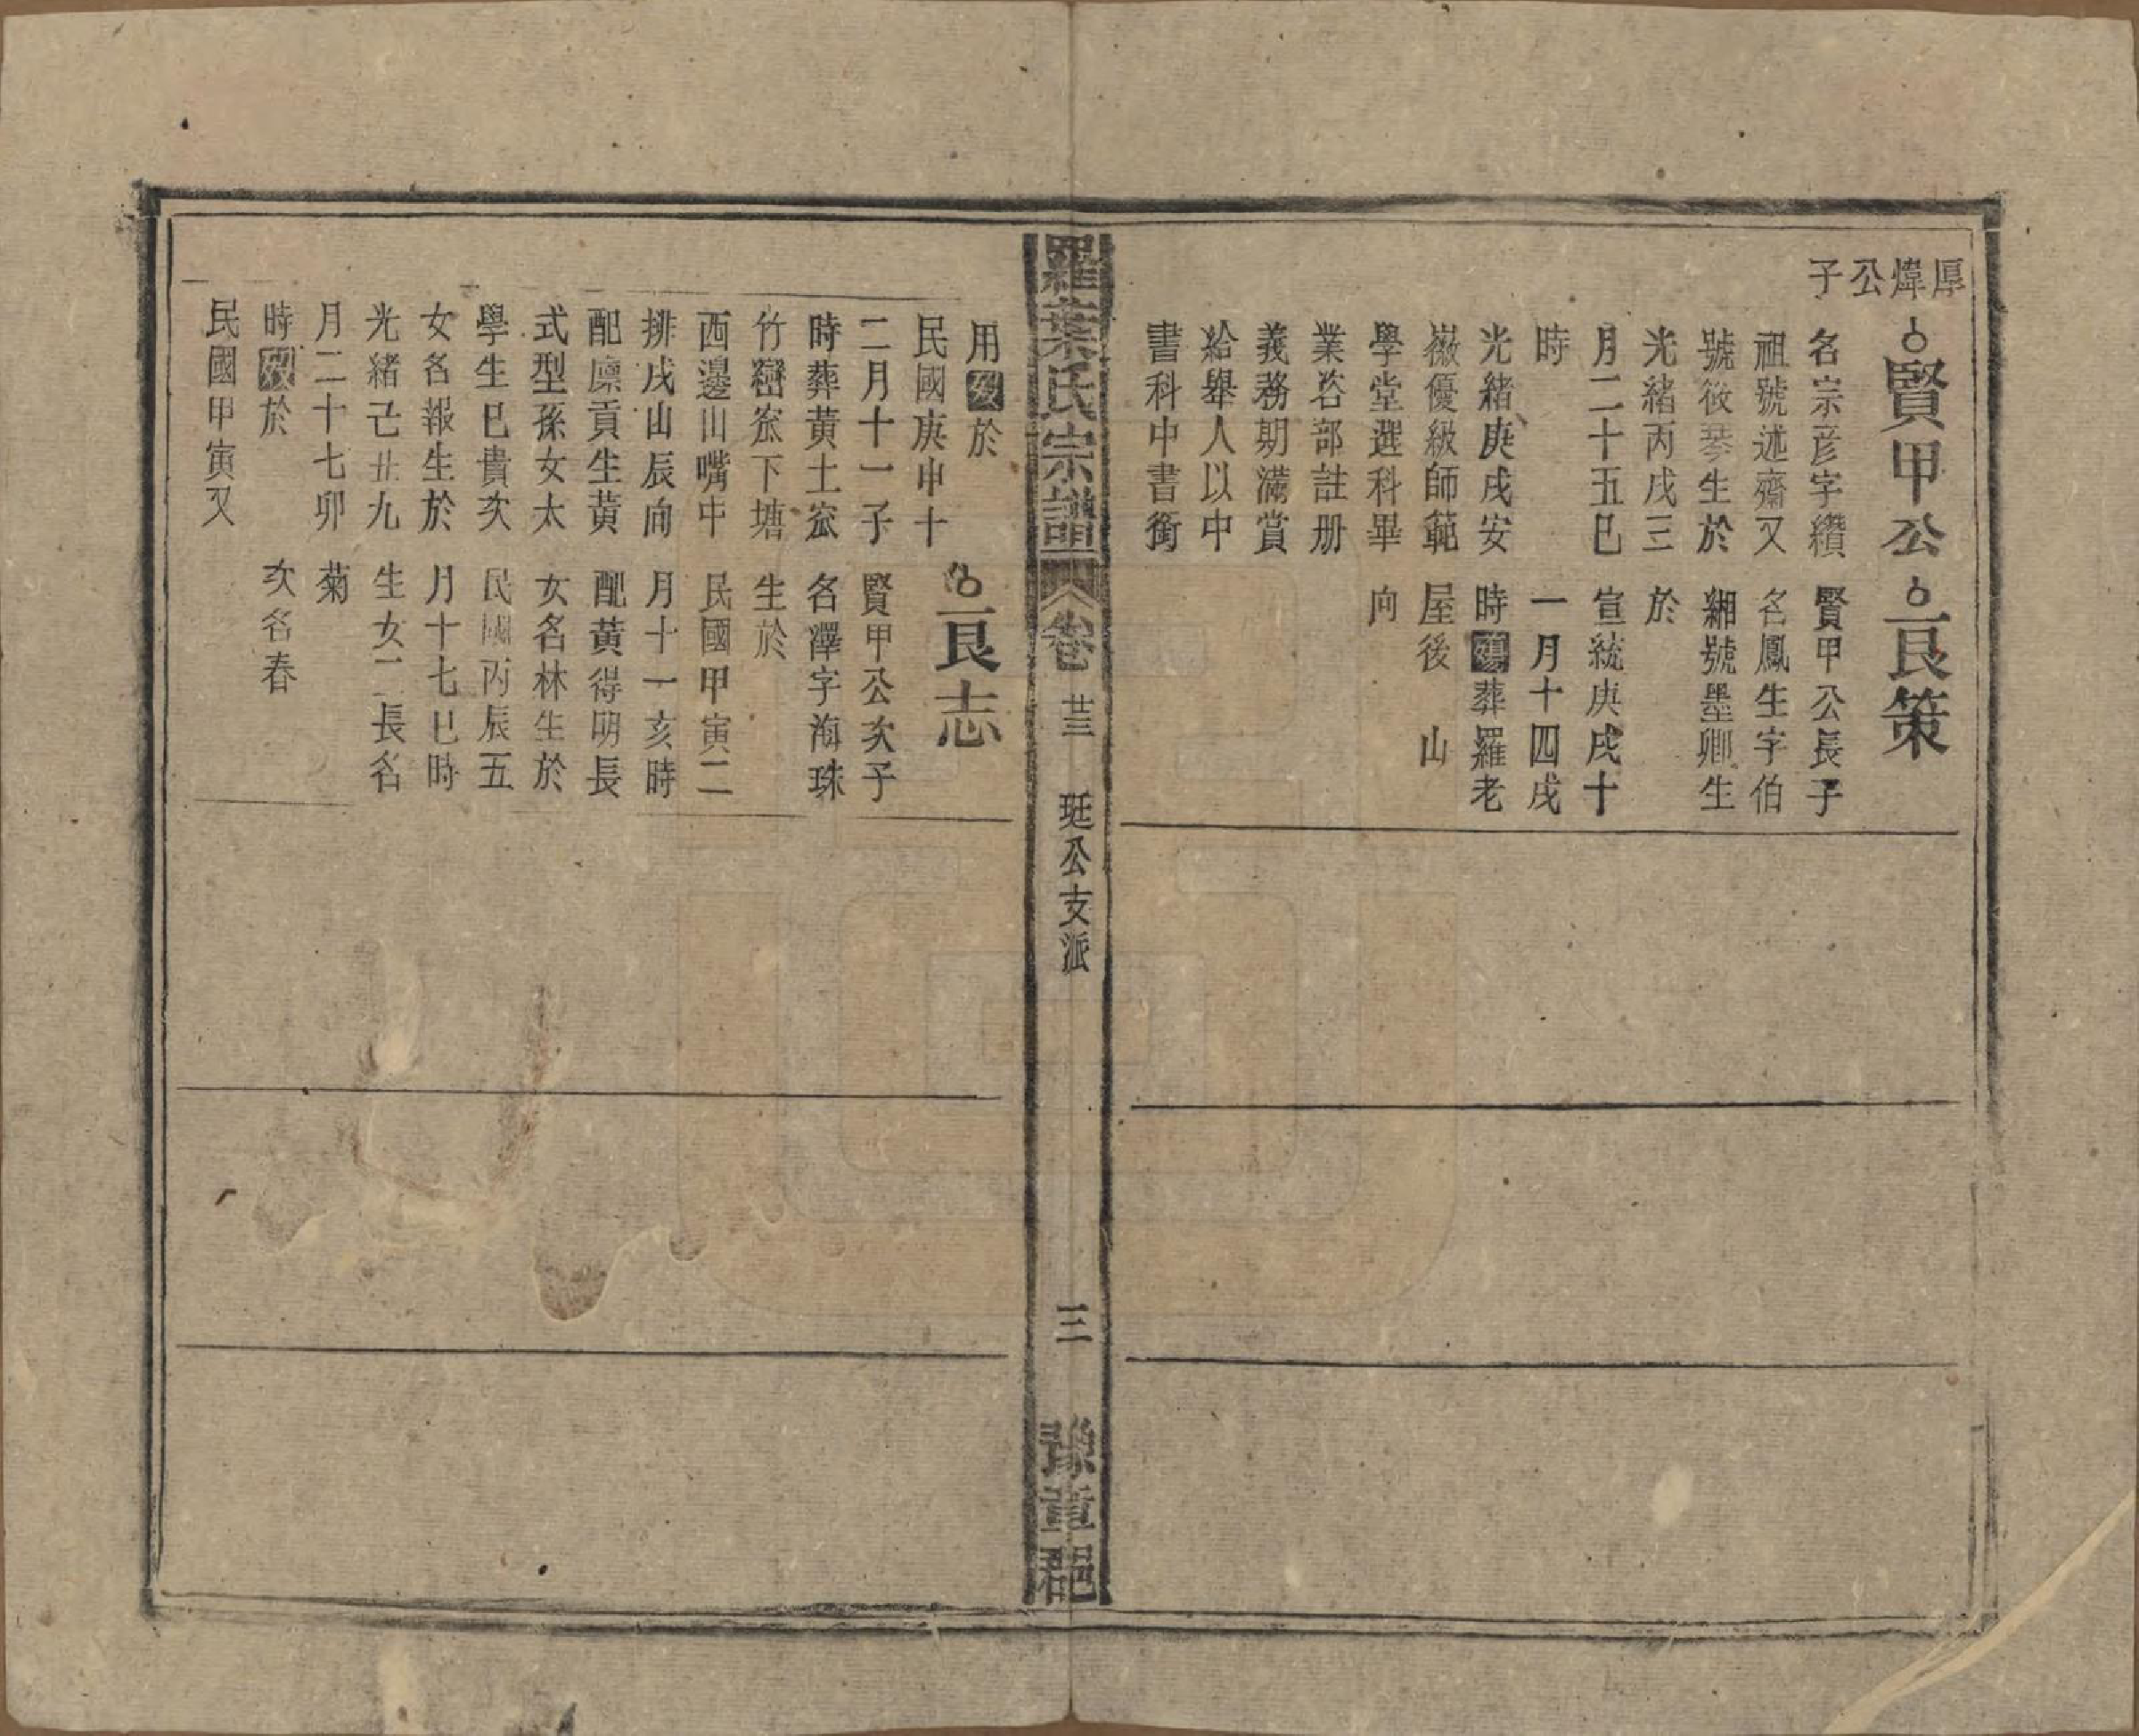 厚煒公子
賢甲公
名宗彦字纘
祖號述齋又
號筱琴生於
光緒丙戌三
月二十五巳
時
光緒庚戌安
徽優級師範
學堂選科畢
業咨部註册
義務期滿賞
給舉人以中
書科中書銜
艮策
賢甲公長子
名鳳生字伯
緗號墨卿生
於
宣統庚戌十
一月十四戌
時殤葬羅老
屋後 山
向
羅葉氏宗譜
卷 廿三 珽公支派 三
豫章郡
用歿於
民國庚申十
二月十一子
時葬黄土宼
竹𡼏宼下塘
西邊山嘴中
排戌山辰向
配廩貢生黄
式型孫女太
學生巳貴次
女名報生於
光緒己丑九
月二十七卯
時歿於
民國甲寅又
艮志
賢甲公次子
名澤字海珠
生於
民國甲寅二
月十一亥時
配黄得明長
女名林生於
民國丙辰五
月十七巳時
生女二長名
菊
次名春